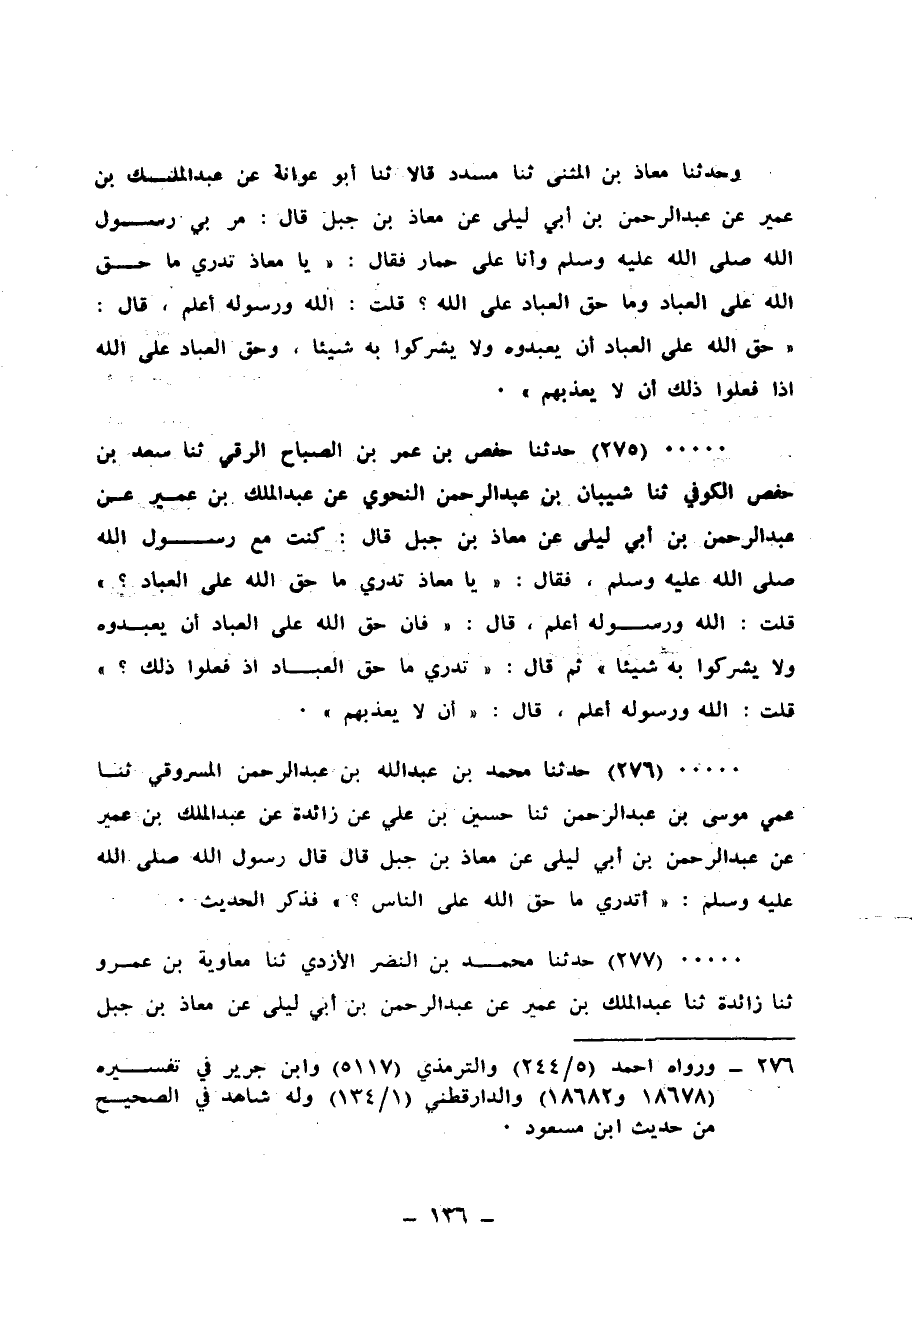 وحدثنا معاذ بن المثنى ثنا مسدد قالا ثنا أبو عوانة عن عبدالملـــك بن
عمير عن عبدالرحمن بن أبي ليلى عن معاذ بن جبل قال : مر بي رســـول
الله صلى الله عليه وسلم وأنا على حمار فقال : « يا معاذ تدري ما حـــق
الله على العباد وما حق العباد على الله ؟ قلت : الله ورسوله أعلم ، قال :
« حق الله على العباد أن يعبدوه ولا يشركوا به شيئا ، وحق العباد على الله
اذا فعلوا ذلك أن لا يعذبهم » ٠
٠٠٠٠٠ (٢٧٥) حدثنا حفص بن عمر بن الصباح الرقي ثنا سعد بن
حفص الكوفي ثنا شيبان بن عبدالرحمن النحوي عن عبدالملك بن عمـير عـن
عبدالرحمن بن أبي ليلى عن معاذ بن جبل قال : كنت مع رســـول الله
صلى الله عليه وسلم ، فقال : « يا معاذ تدري ما حق الله على العباد ؟ »
قلت : الله ورســـوله أعلم ، قال : « فان حق الله على العباد أن يعبـدوه
ولا يشركوا به شيئا » ثم قال : « تدري ما حق العبـــاد اذ فعلوا ذلك ؟ »
قلت : الله ورسوله أعلم ، قال : « أن لا يعذبهم » ٠
٠٠٠٠٠ (٢٧٦) حدثنا محمد بن عبدالله بن عبدالرحمن المسروقي ثنـا
عمي موسى بن عبدالرحمن ثنا حسين بن علي عن زائدة عن عبدالملك بن عمير
عن عبدالرحمن بن أبي ليلى عن معاذ بن جبل قال قال رسول الله صلى الله
عليه وسلم : « أتدري ما حق الله على الناس ؟ » فذكر الحديث ٠
٠٠٠٠٠ (٢٧٧) حدثنا محمـــد بن النضر الأزدي ثنا معاوية بن عمـرو
ثنا زائدة ثنا عبدالملك بن عمير عن عبدالرحمن بن أبي ليلى عن معاذ بن جبل
٢٧٦ ــ ورواه احمد (٢٤٤/٥) والترمذي (٥١١٧) وابن جرير في تفســـيره
(١٨٦٧٨ و١٨٦٨٢) والدارقطني (١٣٤/١) وله شاهد في الصحيـــح
من حديث ابن مسعود ٠
ــ ١٣٦ ــ